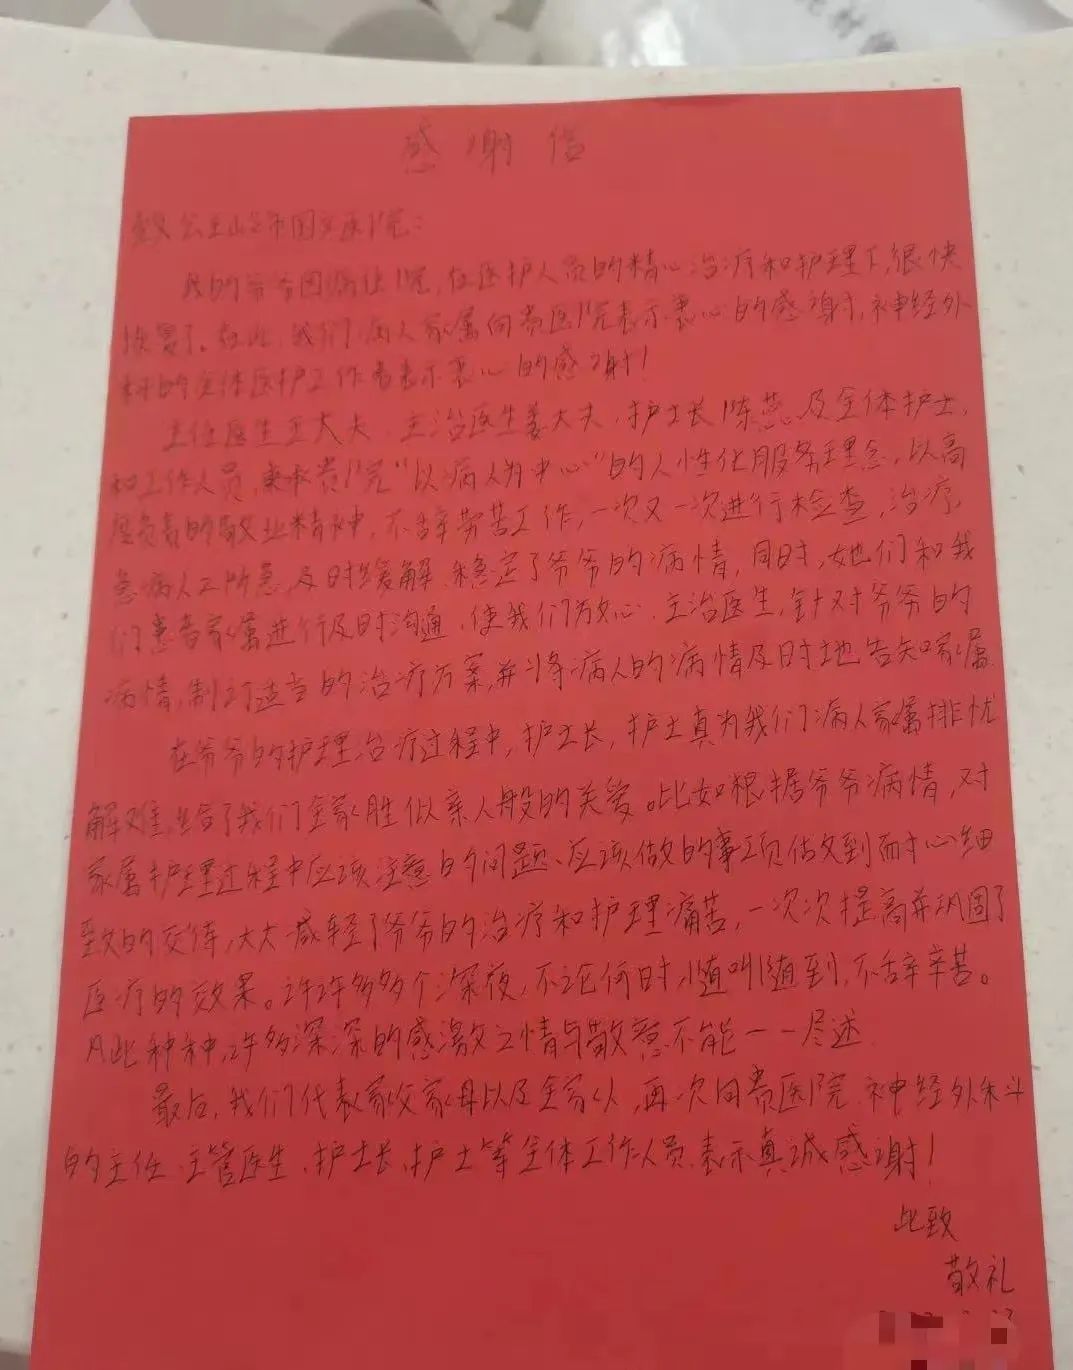 感谢信
致公主岭市国文医院：
我的爷爷因病住院，在医护人员的精心治疗和护理下，很快
恢复了。在此，我们病人家属向贵医院表示衷心的感谢，神经外
科的全体医护工作者表示衷心的感谢！
主任医生王大夫、主治医生姜大夫、护士长陈燕及全体护士
和工作人员，秉承贵院“以病人为中心”的人性化服务理念，以高
度负责的敬业精神，不辞劳苦工作，一次又一次进行检查，治疗，
急病人之所急，及时缓解、稳定了爷爷的病情，同时，她们和我
们患者家属进行及时沟通，使我们放心。主治医生，针对爷爷的
病情，制订适当的治疗方案，并将病人的病情及时地告知家属。
在爷爷的护理治疗过程中，护士长，护士真为我们病人家属排忧
解难，给了我们全家胜似亲人般的关爱。比如根据爷爷病情，对
家属护理过程中应该注意的问题、应该做的事项做到耐心细
致的交待，大大减轻了爷爷的治疗和护理痛苦，一次次提高并巩固了
医疗的效果。许许多多个深夜，不论何时，随叫随到，不辞辛苦。
凡此种种，许多深深的感激之情与敬意不能一一尽述
最后，我们代表家父家母以及全家人，再次向贵医院、神经外科
的主任、主管医生、护士长、护士等全体工作人员表示真诚感谢！
此致
敬礼